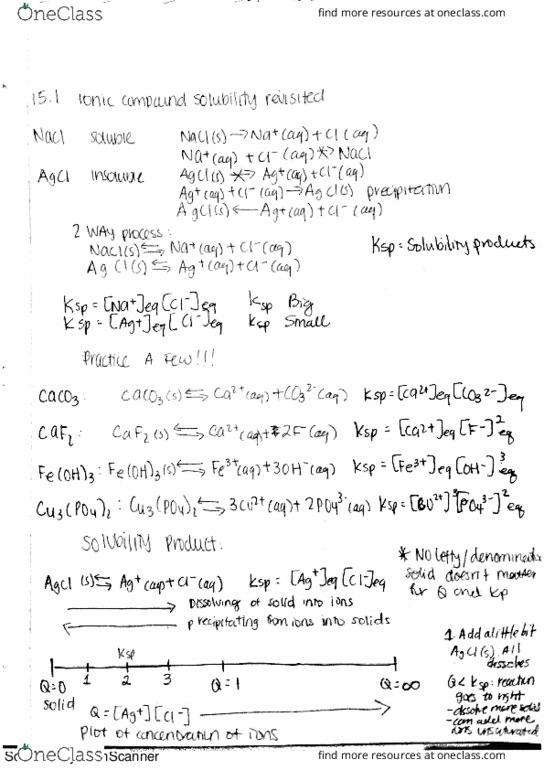 OneClass
find more resources at oneclass.com
15.1 Ionic compound solubility revisited
NaCl soluble NaCl(s) → Na+(aq) + Cl(aq)
Na+(aq) + Cl-(aq) ↛ NaCl
AgCl insoluble AgCl(s) ↛ Ag+(aq) + Cl-(aq)
Ag+(aq) + Cl-(aq) → AgCl(s) precipitation
AgCl(s) ← Ag+(aq) + Cl-(aq)
2 way process:
NaCl(s) ⇆ Na+(aq) + Cl-(aq)
Ksp = Solubility products
AgCl(s) ⇆ Ag+(aq) + Cl-(aq)
Ksp = [Na+]eq [Cl-]eq Ksp Big
Ksp = [Ag+]eq [Cl-]eq Ksp Small
Practice A Few!!!
CaCO3: CaCO3(s) ⇆ Ca2+(aq) + CO3 2-(aq) Ksp = [Ca2+]eq [CO3 2-]eq
CaF2: CaF2(s) ⇆ Ca2+(aq) + 2F-(aq) Ksp = [Ca2+]eq [F-]2 eq
Fe(OH)3: Fe(OH)3(s) ⇆ Fe3+(aq) + 3OH-(aq) Ksp = [Fe3+]eq [OH-]3 eq
Cu3(PO4)2: Cu3(PO4)2 ⇆ 3Cu2+(aq) + 2PO4 3-(aq) Ksp = [Cu2+]3 [PO4 3-]2 eq
Solubility Product:
* No denominator
solid doesn't matter
for Q and Kp
AgCl(s) ⇆ Ag+(aq) + Cl-(aq) Ksp = [Ag+]eq [Cl-]eq
Dissolving of solid into ions
precipitating from ions into solids
Ksp
1 2 3
Q=0 Q=1 Q=∞
solid
Q = [Ag+][Cl-]
Plot of concentration of ions
1. Add a little bit
AgCl(s), All
dissolves
Q < Ksp: reaction
goes to right
- dissolve more solid
- can add more
ions unsaturated
Scanner
find more resources at oneclass.com
OneClass